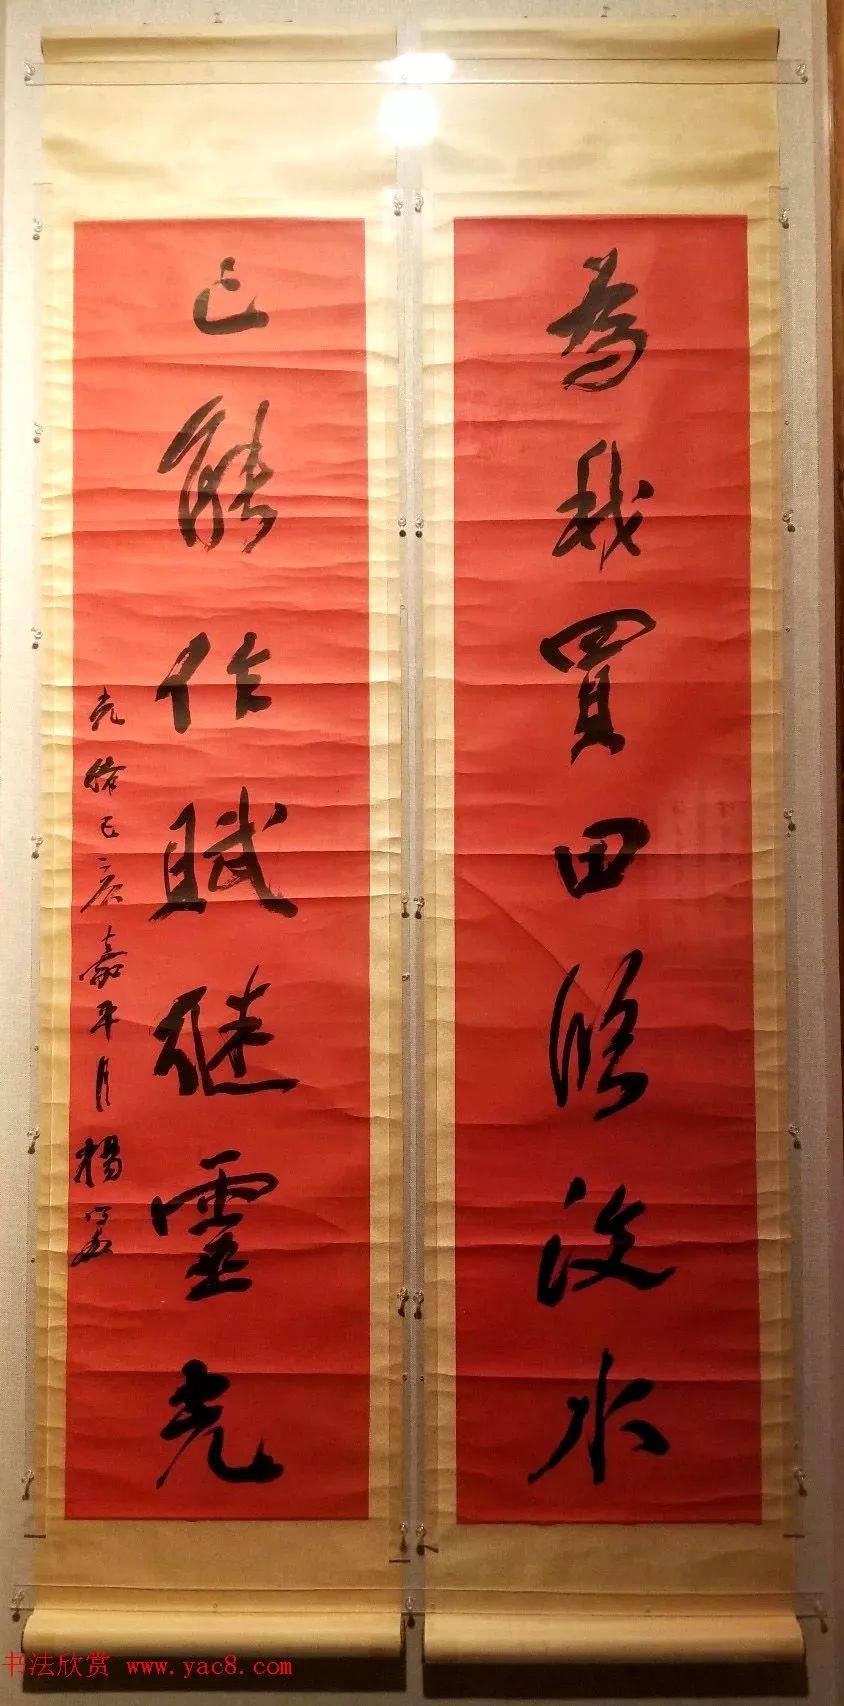 為我買田臨汶水
已能作賦繼靈光
光緒己亥嘉平月楊
书法欣赏 www.yac8.com